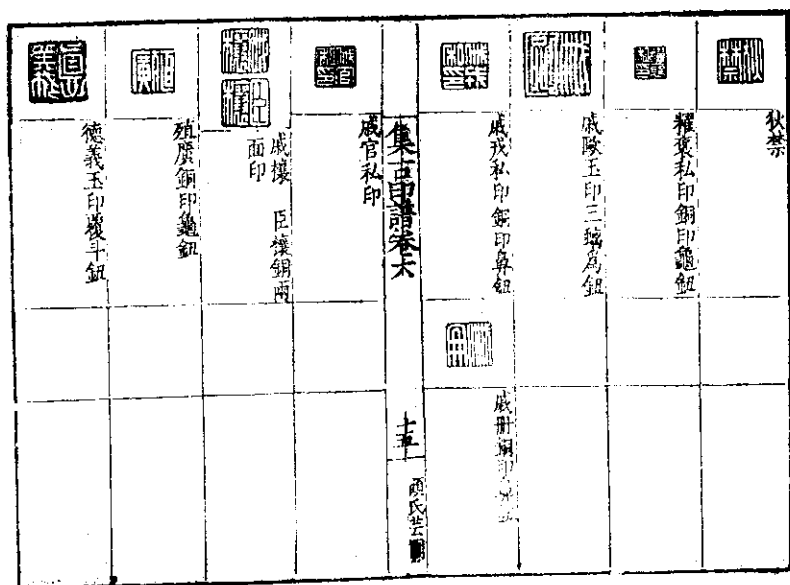 狄禁
糴褒私印銅印龜鈕
戚歐玉印三螭為鈕
戚戎私印銅印鼻鈕
戚冊銅印
集古印譜卷六
十五
顧氏芸閣
戚官私印
戚穰　臣穰銅兩
面印
殖廣銅印龜鈕
德義玉印覆斗鈕